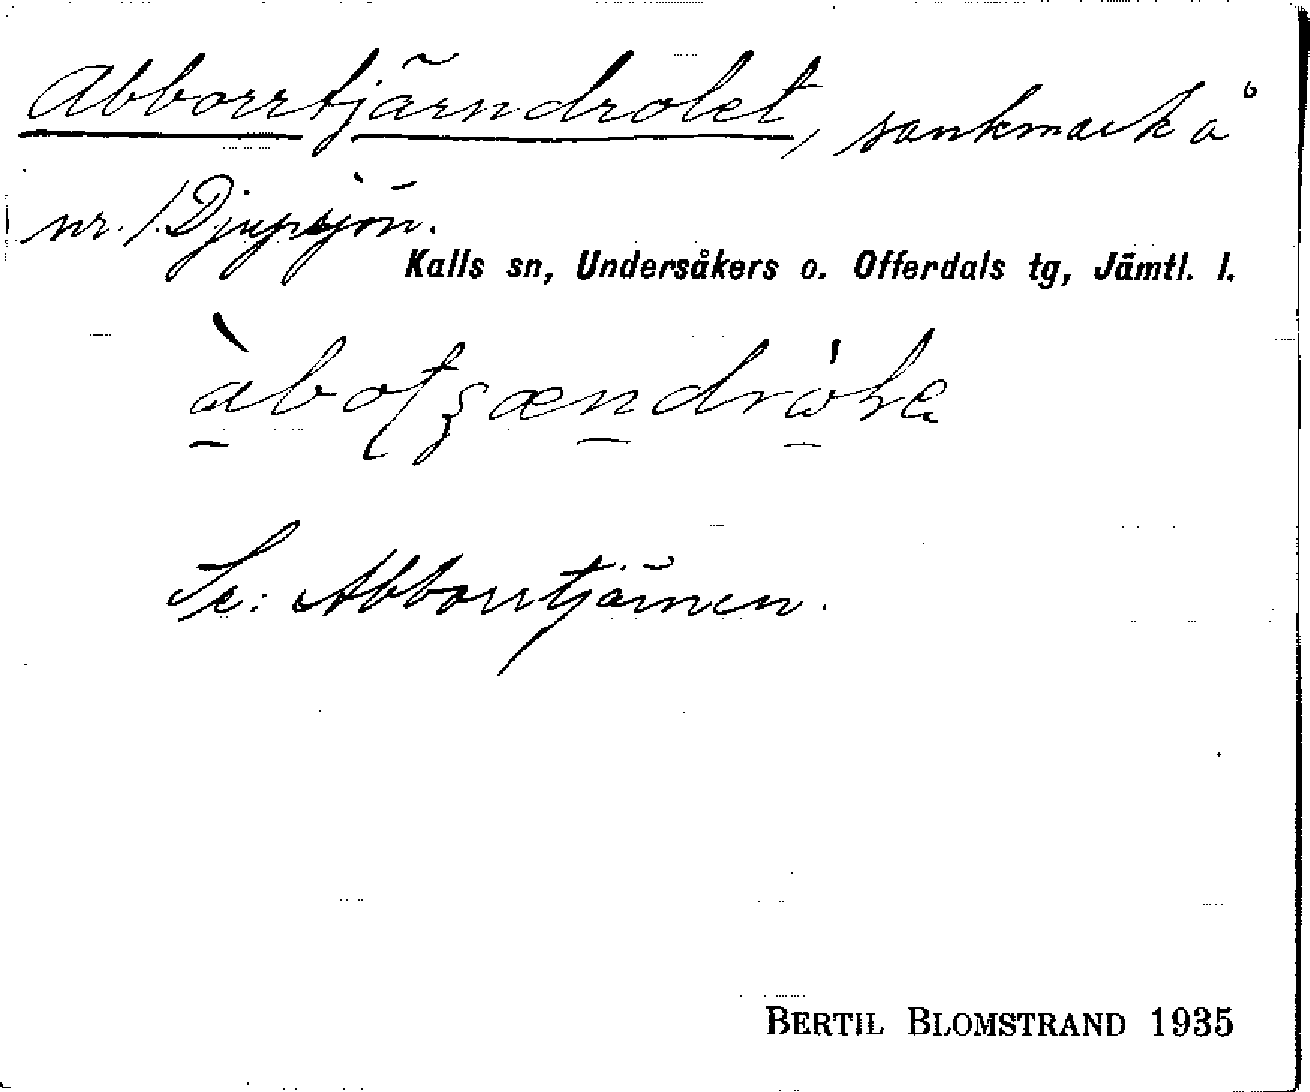 Abborrtjärndrolet, sankmark å
nr. 1. Djupsjön.
Kalls sn, Undersåkers o. Offerdals tg, Jämtl. l.
Se: Abborrtjärnen.
BERTIL BLOMSTRAND 1935